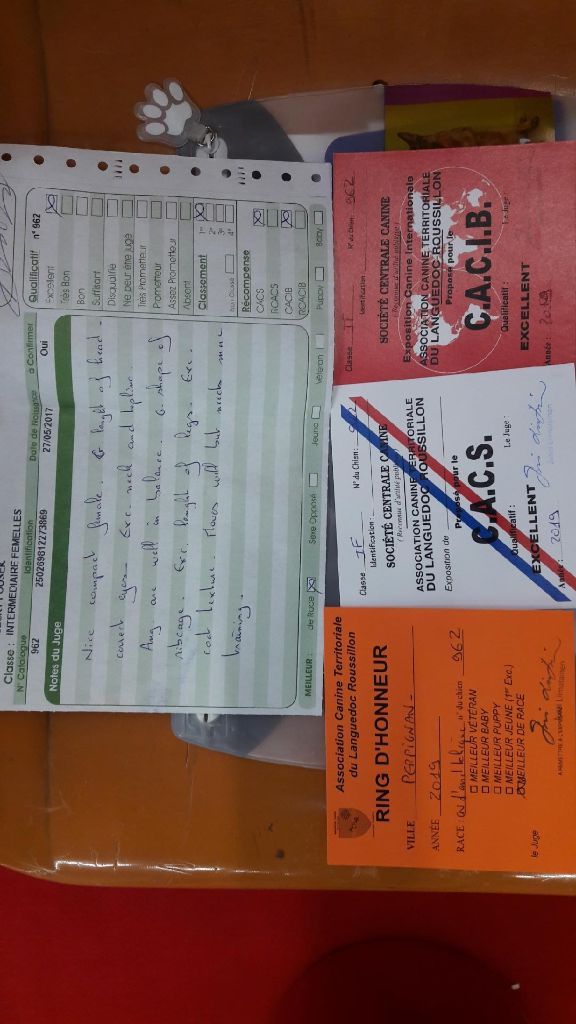 Classe : INTERMEDIAIRE FEMELLES
N° Catalogue Identification Date de Naissance à Confirmer
962 250269812273869 27/05/2017 Oui
Notes du Juge
Nice compact female. G. lenght of head.
correct eyes. Exc. neck and topline.
Ang. are well in balance. G. shape of
ribcage. Exc. lenght of legs. Exc.
coat texture. Moves well but needs more
training.
MEILLEUR : de Race Sexe Opposé Jeune Vétéran Puppy Baby
Qualificatif n° 962
Excellent
Très Bon
Bon
Suffisant
Disqualifié
Ne peut être jugé
Très Prometteur
Prometteur
Assez Prometteur
Absent
Classement 1er
2e
3e
4e
Non Classé
Récompense
CACS
RCACS
CACIB
RCACIB
Classe IF N° du Chien : 962
Identification :
SOCIÉTÉ CENTRALE CANINE
(Reconnue d'utilité publique)
Exposition Canine Internationale
ASSOCIATION CANINE TERRITORIALE
DU LANGUEDOC-ROUSSILLON
Proposé pour le
C.A.C.I.B.
Qualificatif : Le Juge :
EXCELLENT
Année : 2019
Classe IF N° du Chien : 962
Identification :
SOCIÉTÉ CENTRALE CANINE
(Reconnue d'utilité publique)
ASSOCIATION CANINE TERRITORIALE
DU LANGUEDOC ROUSSILLON
Exposition de Proposé pour le
C.A.C.S.
Qualificatif : Le Juge :
EXCELLENT
Année : 2019
Association Canine Territoriale
du Languedoc Roussillon
RING D'HONNEUR
VILLE PERPIGNAN -
ANNÉE 2019
RACE : n° du chien 962
MEILLEUR VÉTÉRAN
MEILLEUR BABY
MEILLEUR PUPPY
MEILLEUR JEUNE (1er Exc.)
MEILLEUR DE RACE
le Juge